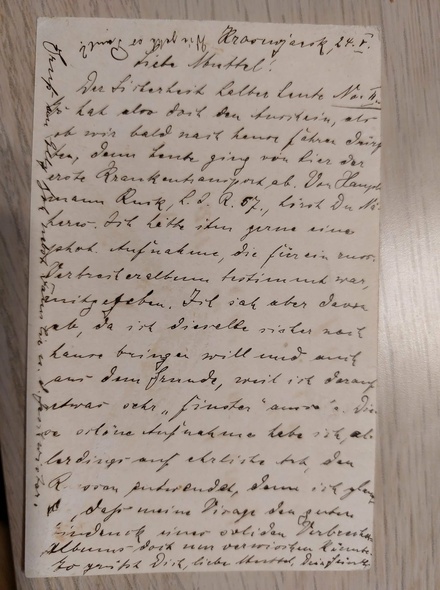 Krasnojarsk, 24. V.
Liebe Muttel!
Der Sicherheit halber heute No. II.
Es hat also doch den Anschein, als
ob wir bald nach hause fahren dürf
ten, denn heute ging von hier der
erste Krankentransport ab. Von Haupt
mann Rusk, k. I. R. 57., hörst Du Nä
heres. Ich hätte ihm gerne eine
phot. Aufnahme, die für ein russ.
Verbrecheralbum bestimmt war,
mitgegeben. Ich sah aber davon
ab, da ich dieselbe sicher nach
hause bringen will und auch
aus dem Grunde, weil ich darauf
etwas sehr „finster" Die
se schöne Aufnahme habe ich, al
lerdings auf ehrliche Art, den
entwendet, denn ich glau
be, daß meine Visage den guten
Eindruck eines soliden Verbrecher
albums doch nur verwischen könnte.
Es grüßt Dich, liebe Muttel, Dein
Wie geht es